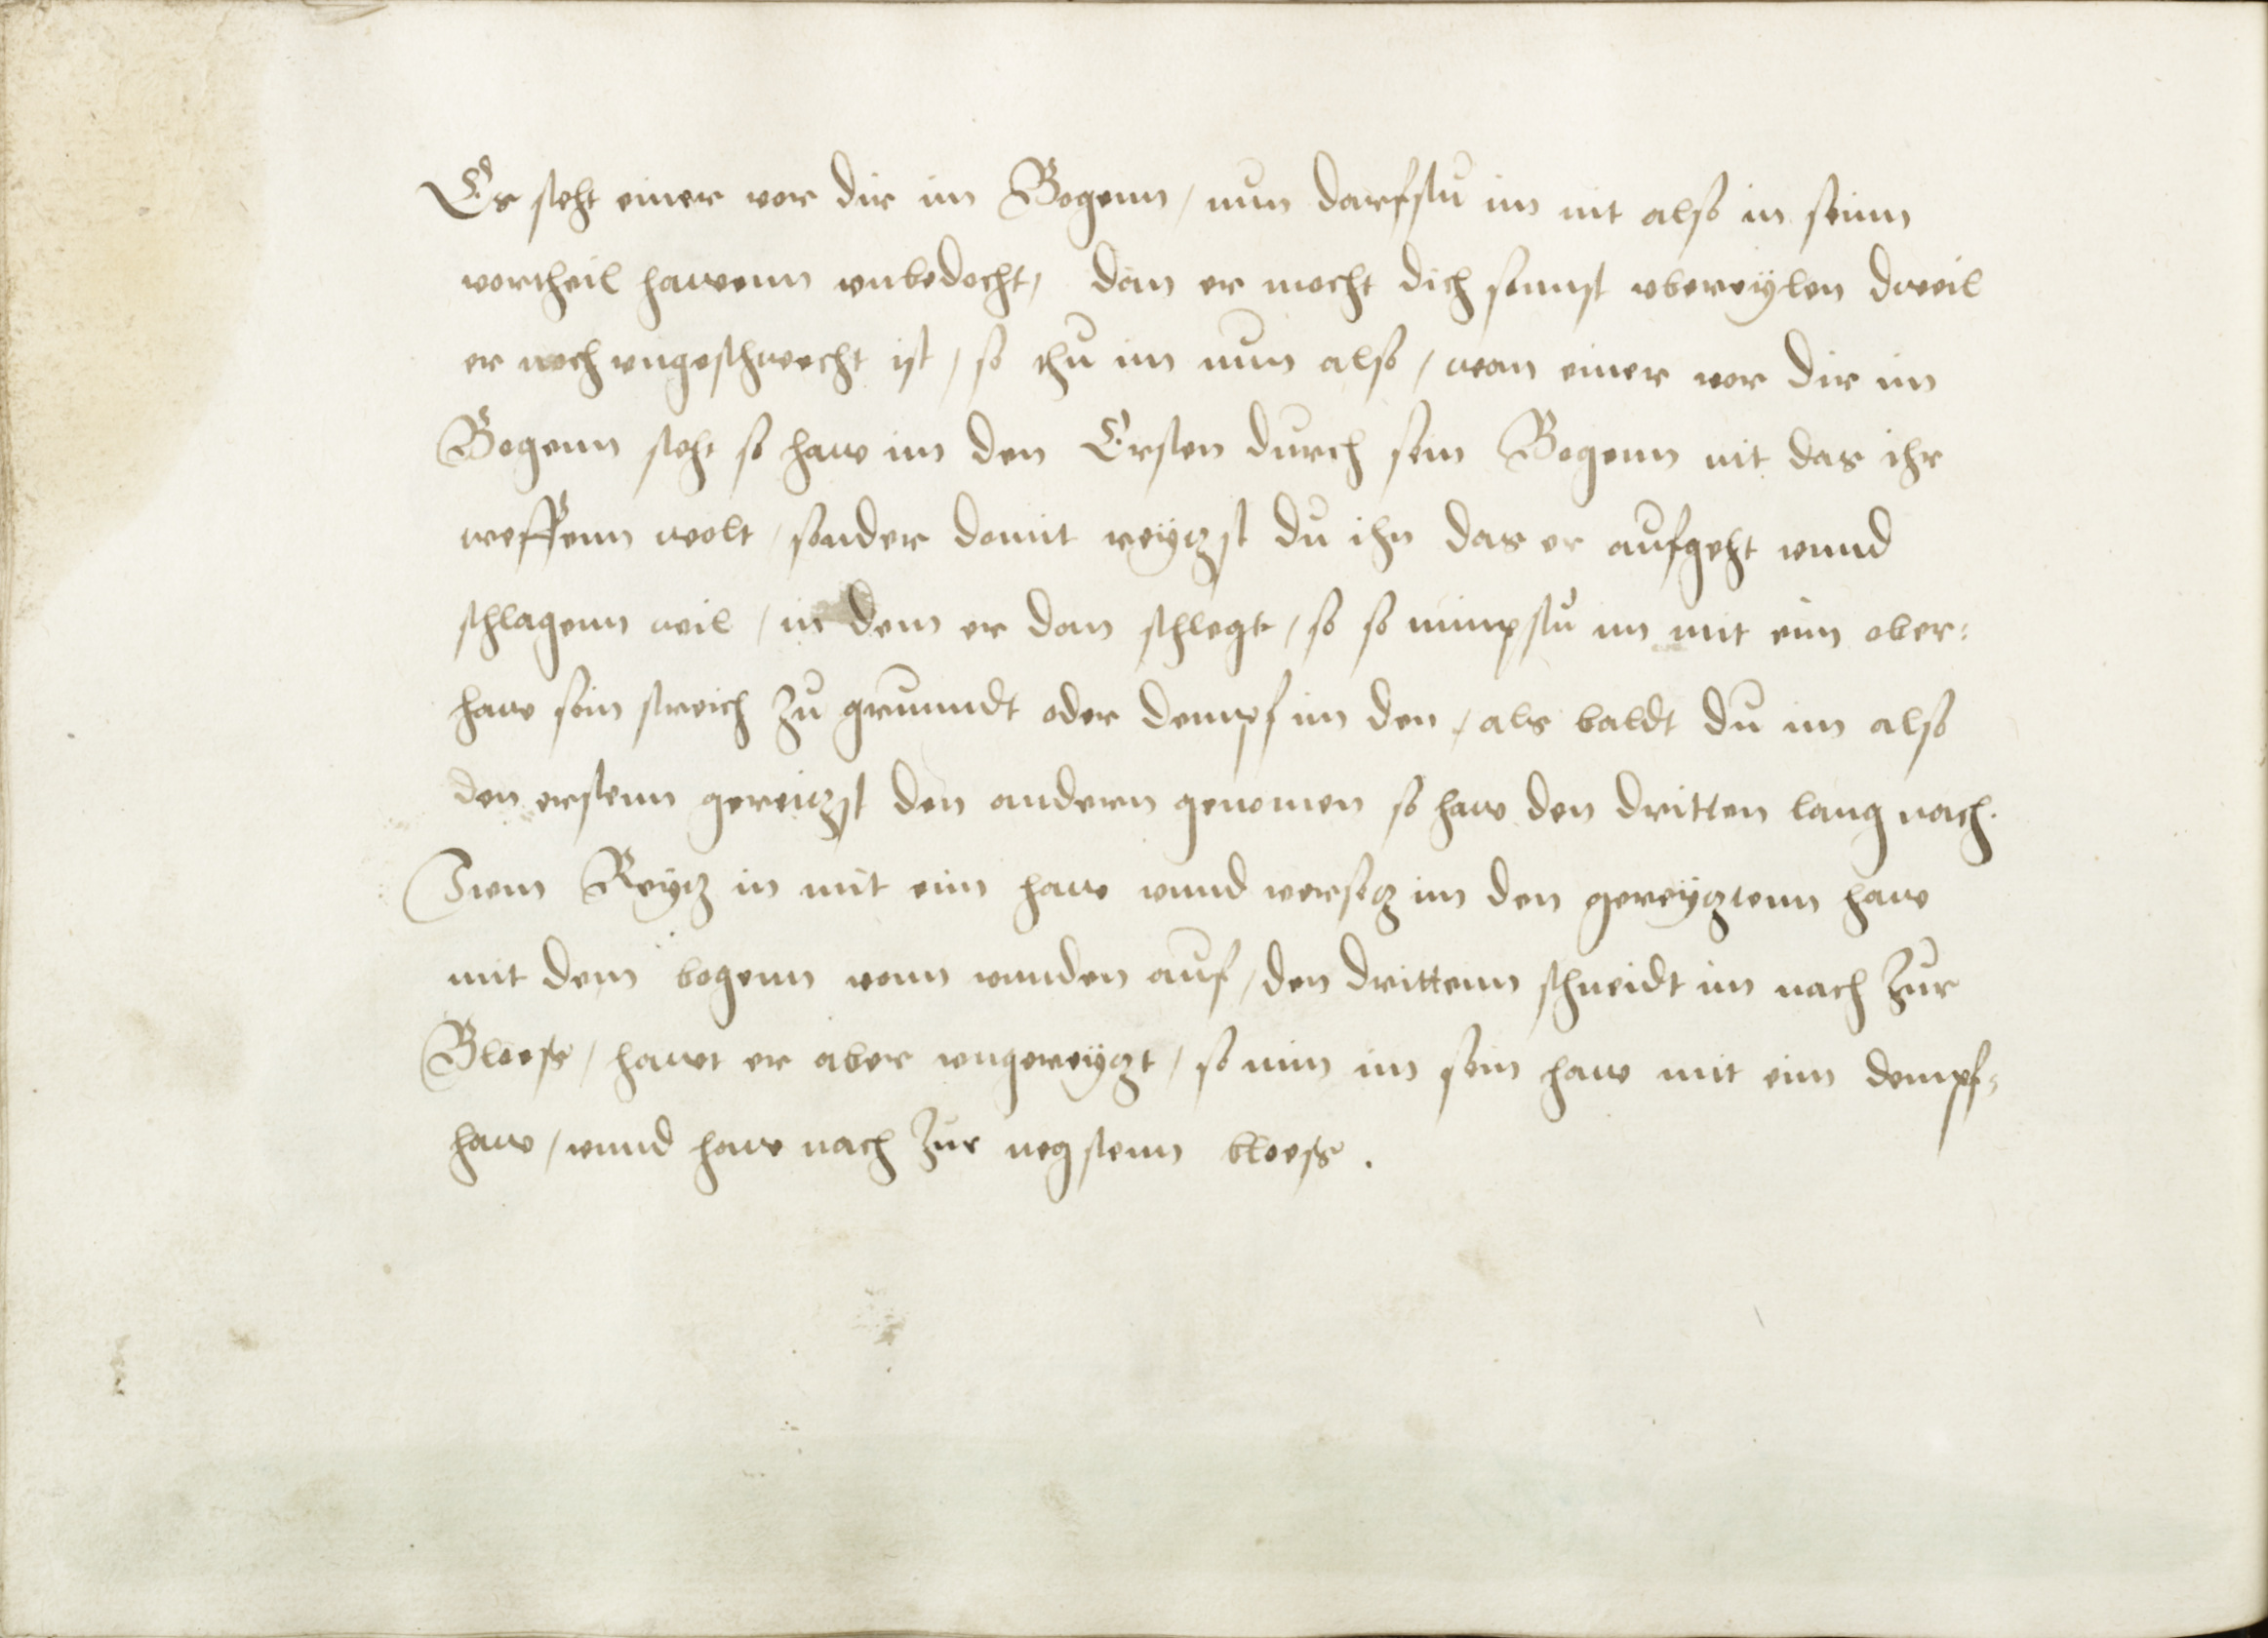 Es steht einer vor dir im Bogenn / nun darfstu im nit also in seinn
vortheil hawenn vnbedocht / dan er mocht dich sonnst vbereÿlen dweil
er noch vngeschwecht ist / so thu im nun also / wan einer vor dir im
Bogenn steht so haw im den Ersten durch sein Bogenn nit das ihr
treffenn wolt / sonder domit reÿtzst du ihn das er aufgeht vnnd
schlagenn wil / in dem er dan schlegt / so so nimpstu im mit eim ober:
haw sein streich zu grunndt oder dempf im den / als baldt du im also
den erstenn gereitzst den andern genomen so haw den dritten lang nach.
Item Reÿtz in mit eim haw vnnd versetz im den gereÿtztenn haw
mit dem bogenn vonn vnnden auf / den drittenn schneidt im nach zur
Bloess / hawt er aber vngereÿtzt / so nim im sein haw mit eim dempf:
haw / vnnd haw nach zur negstenn bloess .